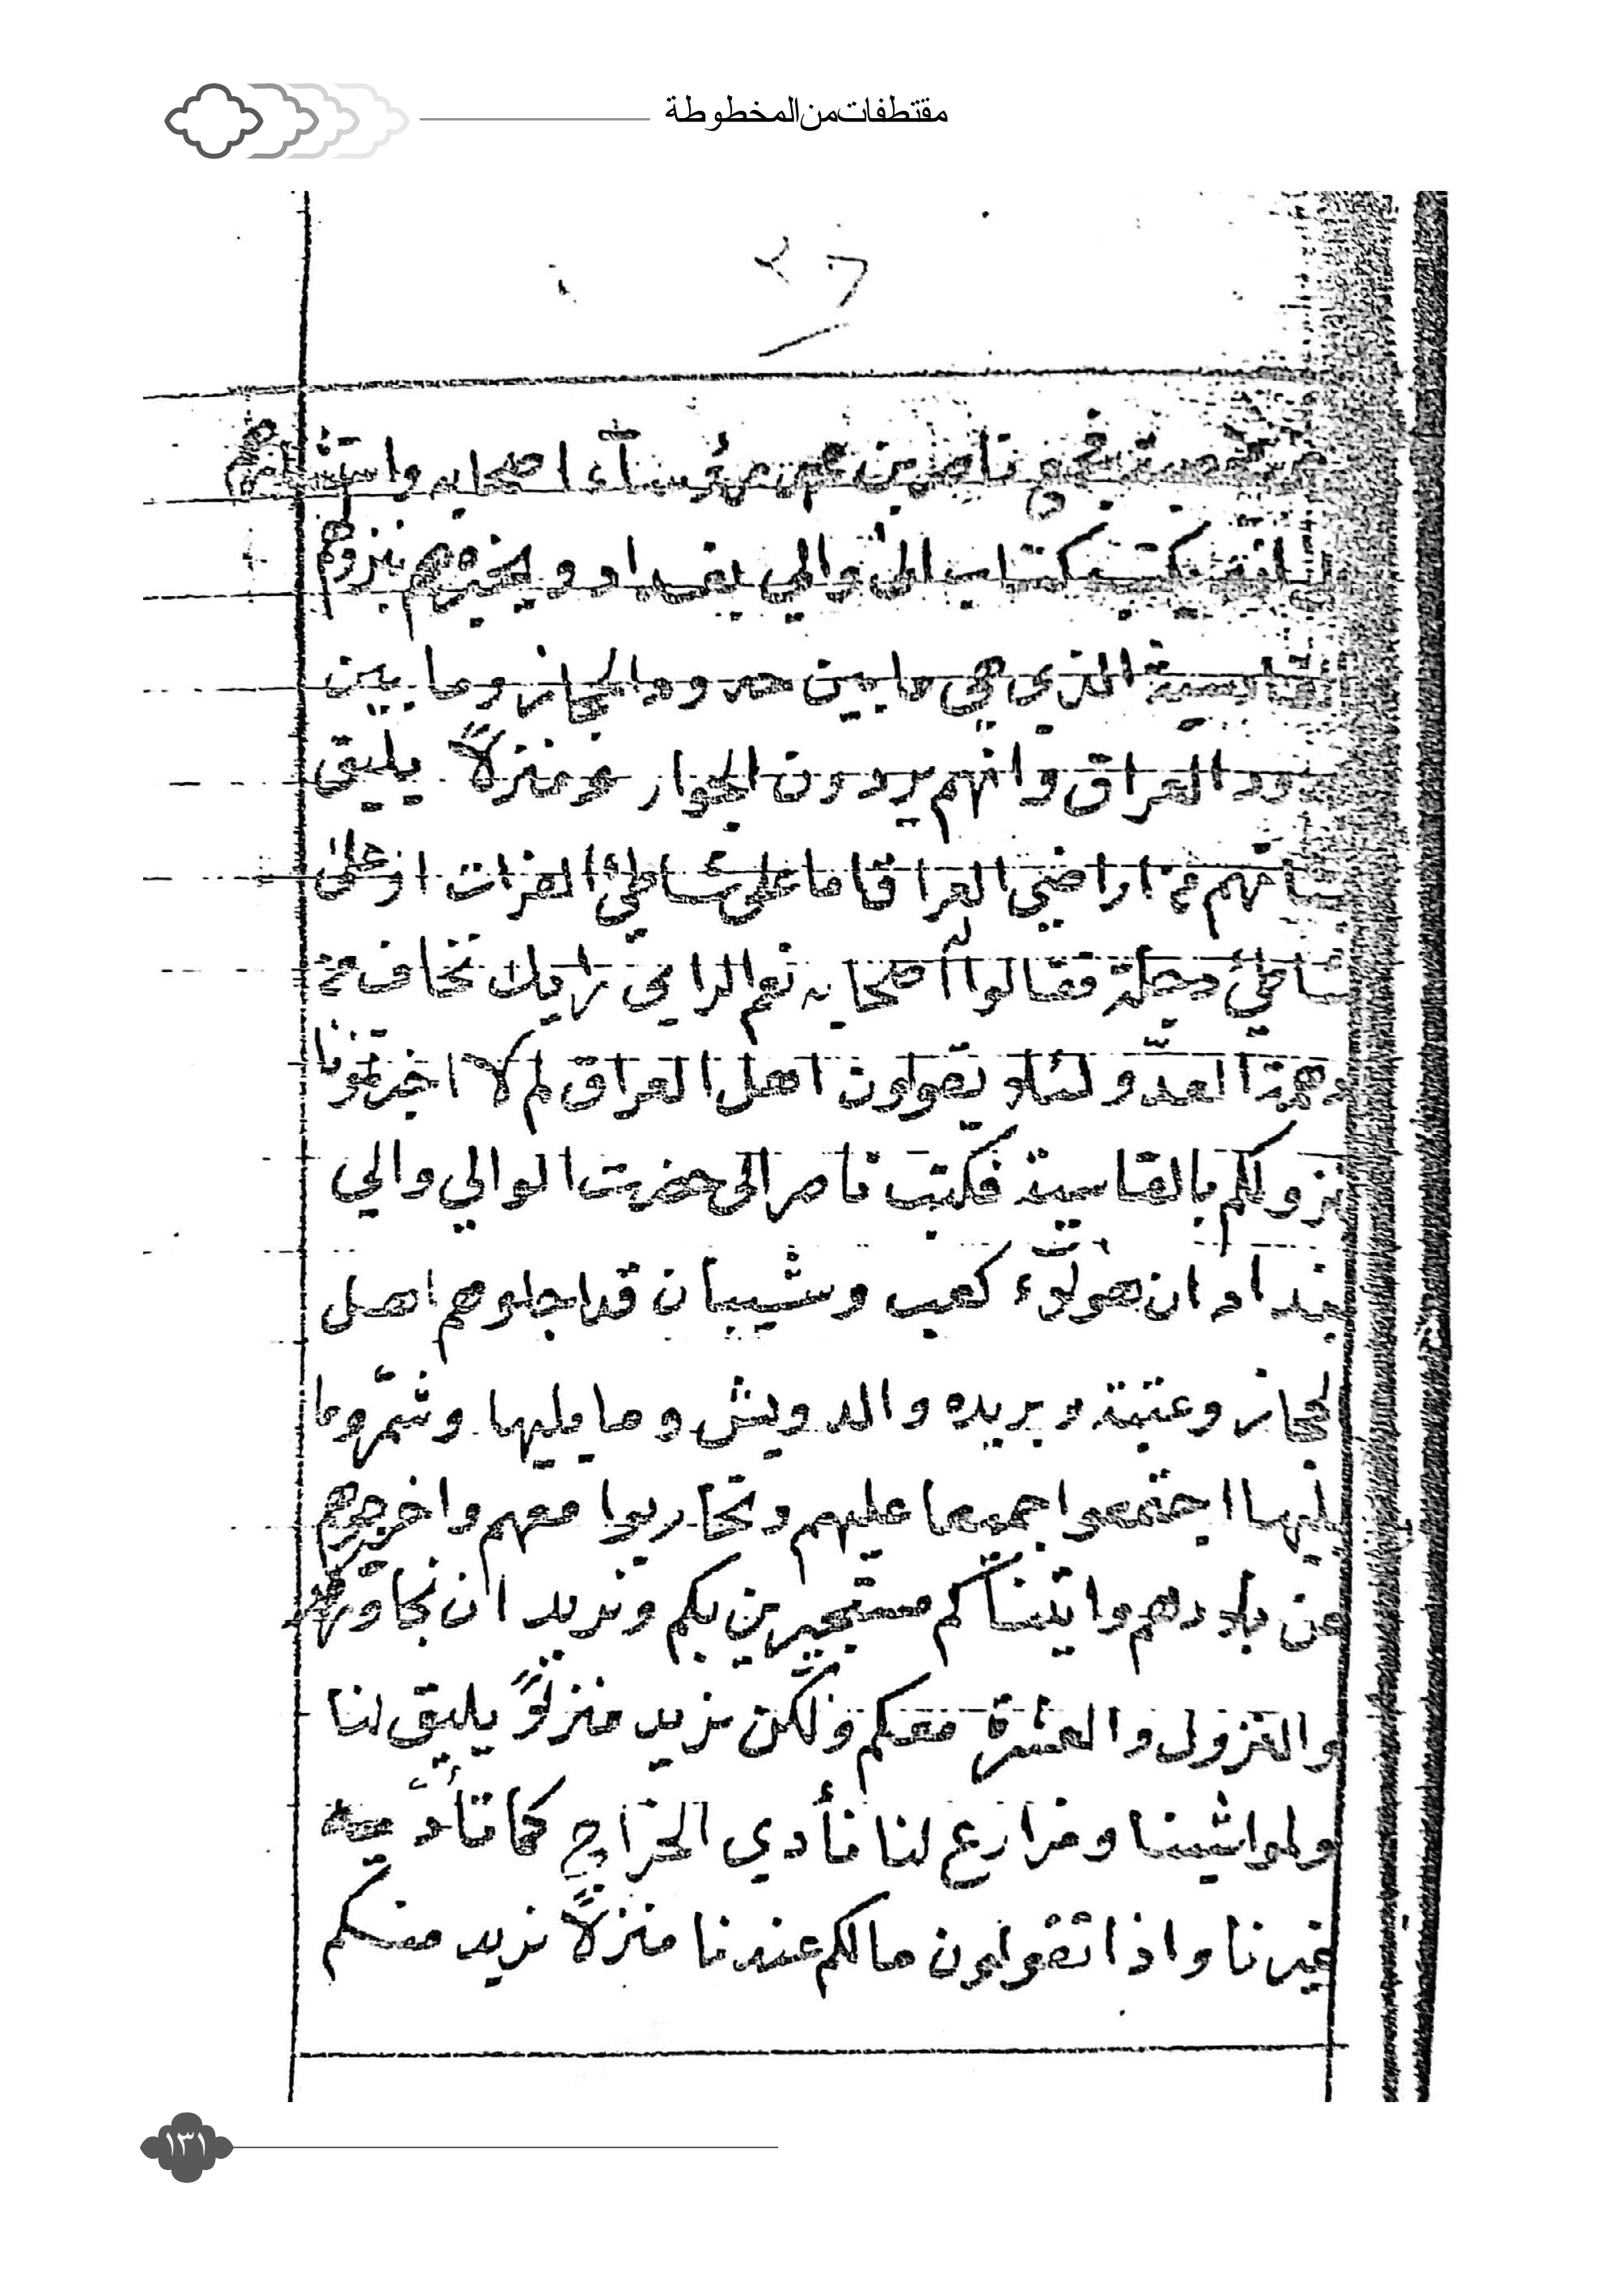 مقتطفات من المخطوطة
٢٦
ناصر بن رؤسآء اصحابه واستشارهم
يكتب كتاب الى والي بغداد ويخبرهم بنزولهم
الذي هي ما بين حدود الحجاز وما بين
العراق وانهم يردون الجوار ومنزلاً يليق
اراضي العراق اما على شاطئ الفرات او على
شاطئ دجلة فقالوا له اصحابه نعم الراي رايك نخاف من
العدو ولئلا يقولون اهل العراق لم لا اخبرتمونا
نزولكم بالقاسية فكتب ناصر الى حضرت الوالي والي
بغداد ان هولآء كعب وشيبان قد اجلوهم اهل
لحجاز وعتبة وبريده والدويش وما يليها وشمّر وما
يليها اجتمعوا جميعا عليهم وتحاربوا معهم واخرجوهم
من بلادهم واتيناكم مستجيرين بكم ونريد ان
والنزول والعشرة معكم ولكن نريد منزلاً يليق لنا
ولمواشينا ومزارع لنا نأدي الخراج كما تأديه
غيرنا واذا تقولون مالكم عندنا منزلاً نريد منكم
١٣١